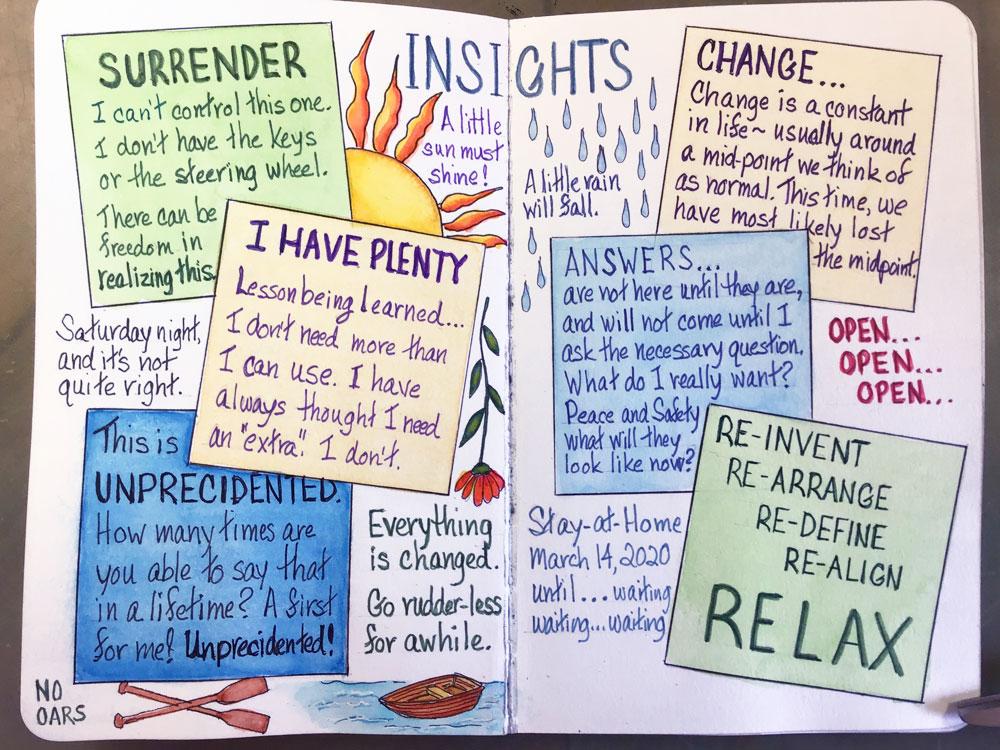 INSIGHTS
SURRENDER
I can't control this one.
I don't have the keys
or the steering wheel.
There can be
freedom in
realizing this.
A little
sun must
shine!
I HAVE PLENTY
Lesson being learned...
I don't need more than
I can use. I have
always thought I need
an "extra". I don't.
Saturday night,
and it's not
quite right.
This is
UNPRECIDENTED.
How many times are
you able to say that
in a lifetime? A first
for me! Unprecidented!
Everything
is changed.
Go rudder-less
for awhile.
NO
OARS
A little rain
will fall.
CHANGE...
Change is a constant
in life~ usually around
a mid-point we think of
as normal. This time, we
have most likely lost
the midpoint.
ANSWERS...
are not here until they are,
and will not come until I
ask the necessary question.
What do I really want?
Peace and Safety
what will they
look like now?
OPEN...
OPEN...
OPEN...
Stay-at-Home
March 14, 2020
until... waiting
waiting...waiting
RE-INVENT
RE-ARRANGE
RE-DEFINE
RE-ALIGN
RELAX